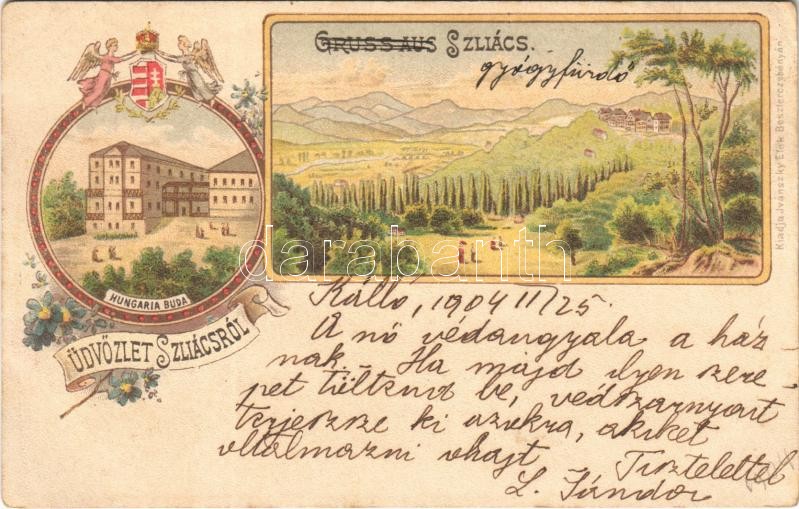 GRUSS AUS SZLIÁCS.
gyógyfürdő
HUNGARIA BUDA
ÜDVÖZLET SZLIÁCSRÓL
Kiadja Ivánszky Elek Besztercebányán
darabanth
Kálló, 1904 II/25.
A nő védangyala a ház-
nak. Ha majd ilyen szere-
pet töltend be, védszárnyait
terjessze ki azokra, akiket
oltalmazni óhajt Tisztelettel
L. Sándor